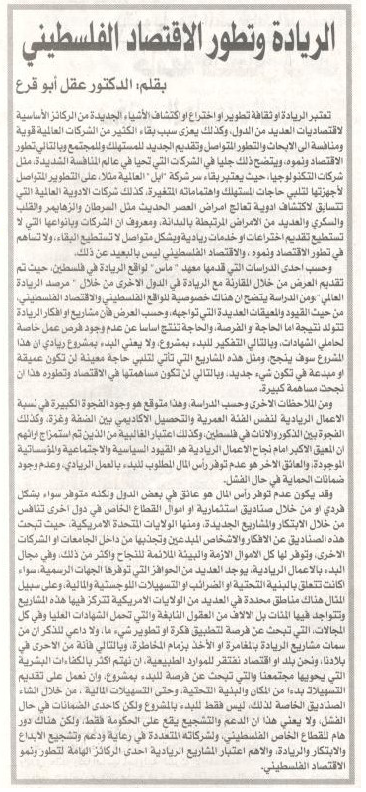 الريادة وتطور الاقتصاد الفلسطيني
بقلم: الدكتور عقل أبو قرع
تعتبر الريادة او ثقافة تطوير او اختراع او اكتشاف الأشياء الجديدة من الركائز الأساسية
لاقتصاديات العديد من الدول، وكذلك يعزى سبب بقاء الكثير من الشركات العالمية قوية
ومنافسة الى الابحاث والتطور المتواصل وتقديم الجديد للمستهلك وللمجتمع وبالتالي تطور
الاقتصاد ونموه، ويتضح ذلك جليا في الشركات التي تحيا في عالم المنافسة الشديدة، مثل
شركات التكنولوجيا، حيث يعتبر بقاء سر شركة "ابل" العالمية مثلا، على التطوير المتواصل
لأجهزتها لتلبي حاجات المستهلك واهتماماته المتغيرة، كذلك شركات الادوية العالمية التي
تتسابق لاكتشاف ادوية تعالج امراض العصر الحديث مثل السرطان والزهايمر والقلب
والسكري والعديد من الامراض المرتبطة بالبدانة، ومعروف ان الشركات وبانواعها التي لا
تستطيع تقديم اختراعات او خدمات ريادية وبشكل متواصل لا تستطيع البقاء، ولا تساهم
في تطور الاقتصاد ونموه، والاقتصاد الفلسطيني ليس بالبعيد عن ذلك.
وحسب احدى الدراسات التي قدمها معهد "ماس" لواقع الريادة في فلسطين، حيث تم
تقديم العرض من خلال المقارنة مع الريادة في الدول الاخرى من خلال "مرصد الريادة
العالمي" ومن الدراسة يتضح ان هناك خصوصية للواقع الفلسطيني والاقتصاد الفلسطيني،
من حيث القيود والمعيقات العديدة التي تواجهه، وحسب العرض فأن مشاريع او افكار الريادة
تتولد نتيجة اما الحاجة او الفرصة، والحاجة تنتج اساسا عن عدم وجود فرص عمل خاصة
لحاملي الشهادات، وبالتالي التفكير للبدء بمشروع، ولا يعني البدء بمشروع ريادي ان هذا
المشروع سوف ينجح، ومثل هذه المشاريع التي تأتي لتلبي حاجة معينة لن تكون عميقة
او مبدعة في تكون شيء جديد، وبالتالي لن تكون مساهمتها في الاقتصاد وتطوره هذا ان
نجحت مساهمة كبيرة.
ومن الملاحظات الاخرى وحسب الدراسة، وهذا متوقع هو وجود الفجوة الكبيرة في نسبة
الاعمال الريادية لنفس الفئة العمرية والتحصيل الاكاديمي بين الضفة وغزة، وكذلك
الفجوة بين الذكور والاناث في فلسطين، وكذلك اعتبار الغالبية من الذين تم استمزاج ارائهم
ان المعيق الاكبر امام نجاح الاعمال الريادية هو القيود السياسية والاجتماعية والمؤسساتية
الموجودة، والعائق الاخر هو عدم توفر رأس المال المطلوب للبدء بالعمل الريادي، وعدم وجود
ضمانات الحماية في حال الفشل.
وقد يكون عدم توفر رأس المال هو عائق في بعض الدول ولكنه متوفر سواء بشكل
فردي او من خلال صناديق استثمارية او اموال القطاع الخاص في دول اخرى تنافس
من خلال الابتكار والمشاريع الجديدة، ومنها الولايات المتحدة الامريكية، حيث تبحث
هذه الصناديق عن الافكار والاشخاص المبدعين وتجذبها من داخل الجامعات او الشركات
الاخرى، وتوفر لها كل الاموال الازمة والبيئة الملائمة للنجاح وأكثر من ذلك، وفي مجال
البدء بالاعمال الريادية، يوجد العديد من الحوافز التي توفرها الجهات الرسمية، سواء
اكانت تتعلق بالبنية التحتية او الضرائب او التسهيلات اللوجستية والمالية، وعلى سبيل
المثال هناك مناطق محددة في العديد من الولايات الامريكية تتركز فيها هذه المشاريع
وتتواجد فيها المئات بل الالاف من العقول النابغة والتي تحمل الشهادات العليا وفي كل
المجالات، التي تبحث عن فرصة لتطبيق فكرة او تطوير شيء ما، ولا داعي للذكر ان من
سمات مشاريع الريادة المغامرة او الأخذ بزمام المخاطرة، وبالتالي فأنه من الاحرى في
بلادنا، ونحن بلد او اقتصاد نفتقر للموارد الطبيعية، ان نهتم اكثر بالكفاءات البشرية
التي يحويها مجتمعنا والتي تبحث عن فرصة للبدء بمشروع، وان نعمل على تقديم
التسهيلات بدءا من المكان والبنية التحتية، وحتى التسهيلات المالية، من خلال انشاء
الصناديق الخاصة لذلك، ليس فقط للبدء بالمشروع ولكن كاحدى الضمانات في حال
الفشل، ولا يعني هذا ان الدعم والتشجيع يقع على الحكومة فقط، ولكن هناك دور
هام للقطاع الخاص الفلسطيني، ولشركاته المتعددة في رعاية ودعم وتشجيع الابداع
والابتكار والريادة، والاهم اعتبار المشاريع الريادية احدى الركائز الهامة لتطور ونمو
الاقتصاد الفلسطيني.